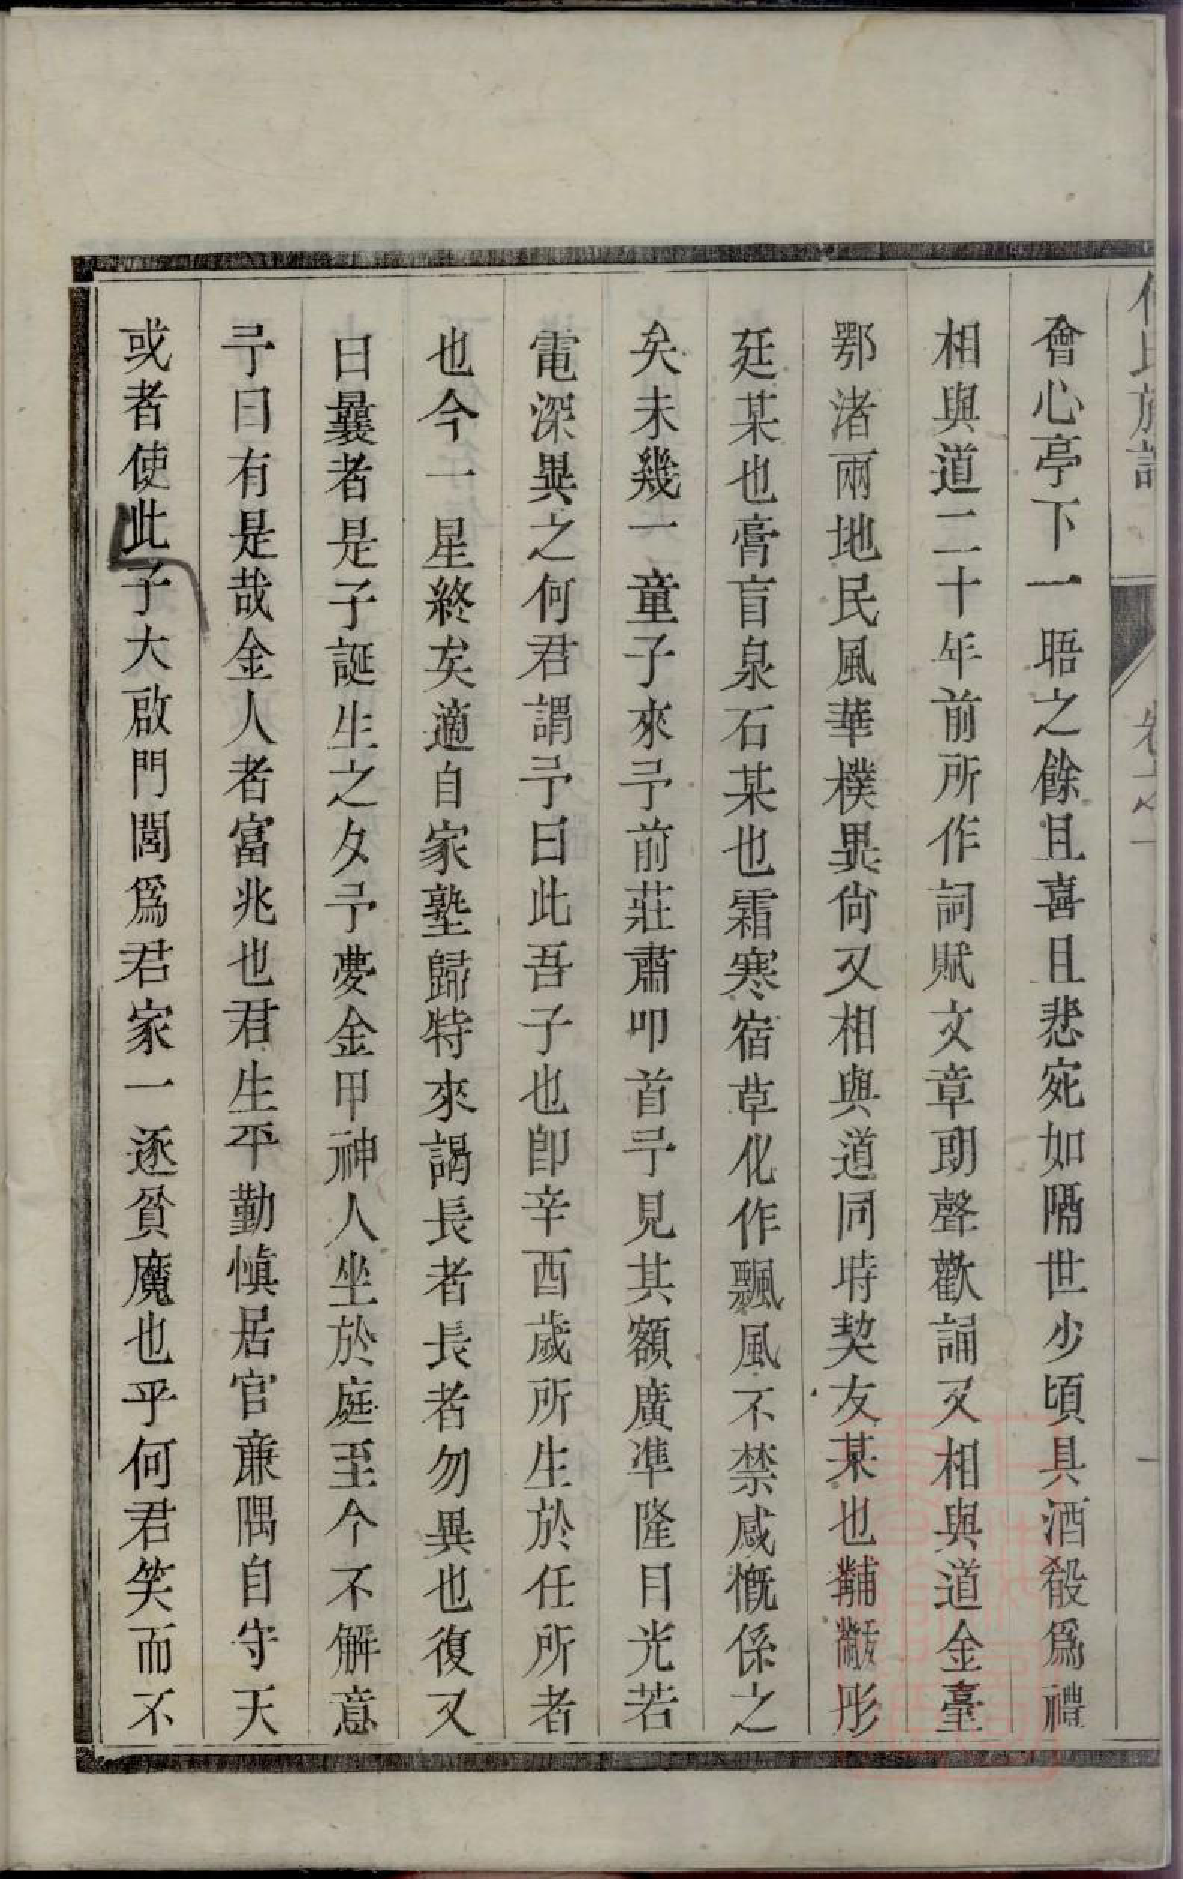 會心亭下一晤之餘且喜且悲宛如隔世少頃具酒殽爲禮
相與道二十年前所作詞賦文章朗聲歡誦又相與道金臺
鄂渚兩地民風華樸異尙又相與道同時契友某也黼黻彤
廷某也膏盲泉石某也霜寒宿草化作飄風不禁感慨係之
矣未幾一童子來予前莊肅叩首予見其額廣準隆目光若
電深異之何君謂予曰此吾子也卽辛酉歲所生於任所者
也今一星終矣適自家塾歸特來謁長者長者勿異也復又
曰曩者是子誕生之夕予夢金甲神人坐於庭至今不解意
予曰有是哉金人者富兆也君生平勤愼居官亷隅自守天
或者使此子大啟門閭爲君家一逐貧魔也乎何君笑而不